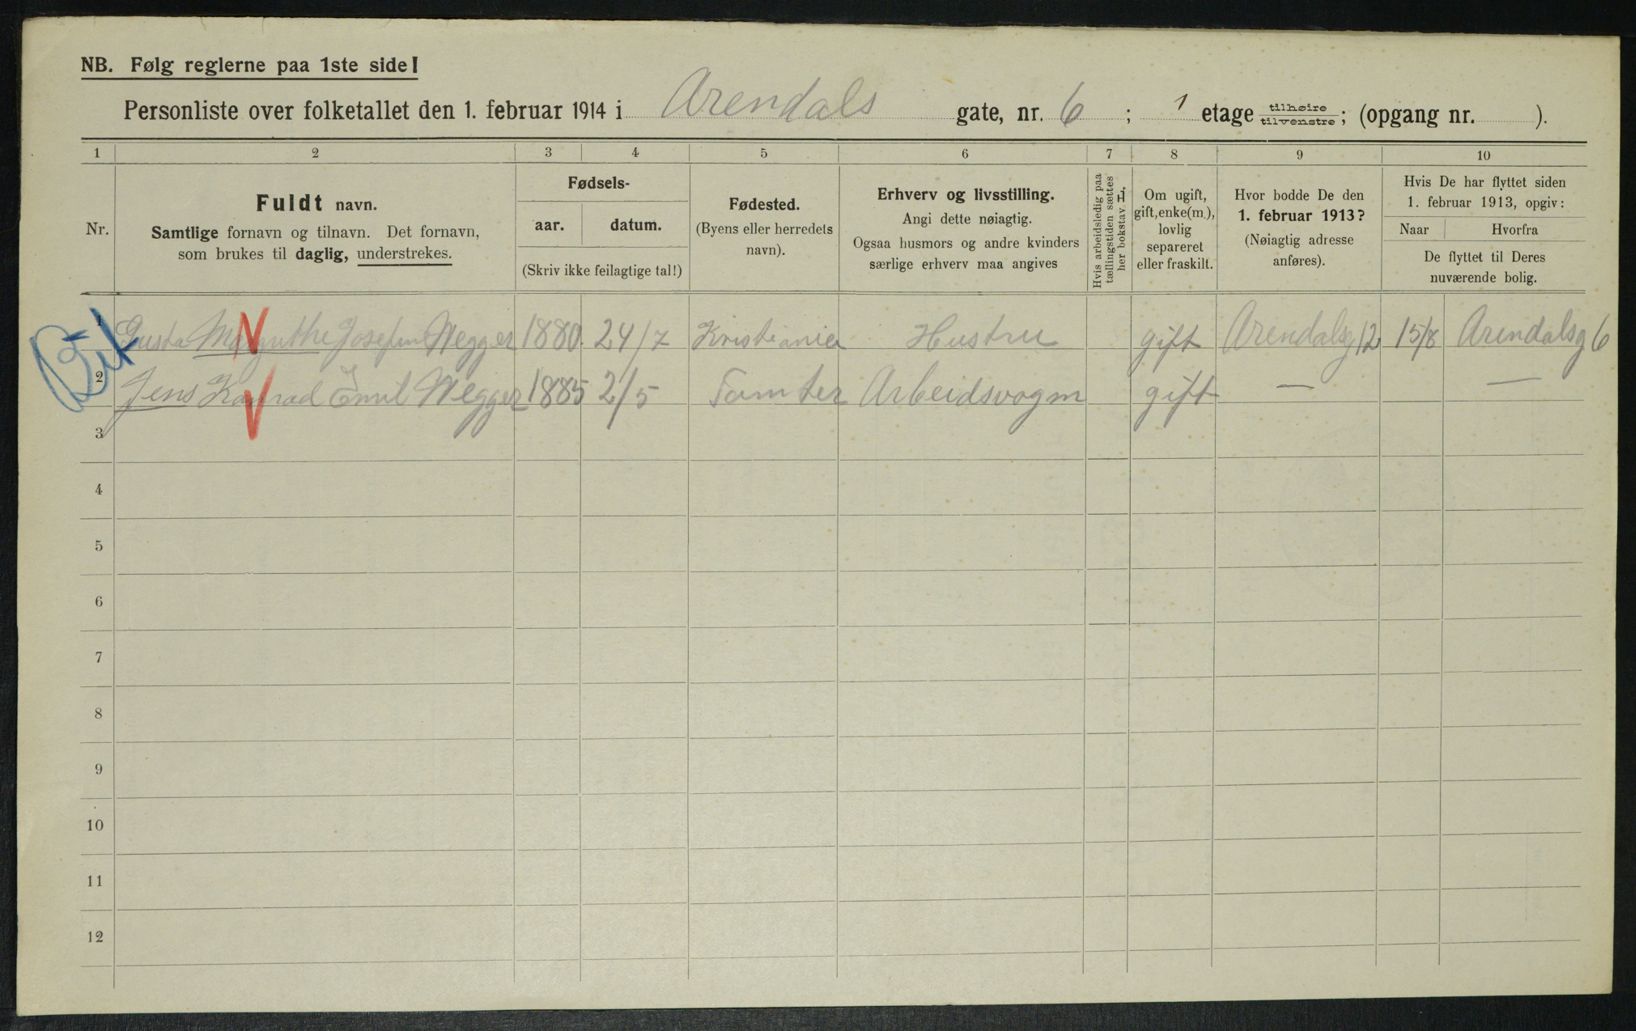 NB. Følg reglerne paa 1ste side!
Personliste over folketallet den 1. februar 1914 i Arendals gate, nr. 6 ; 1 etage tilhøire tilvenstre ; (opgang nr. ).
1 2 3 4 5 6 7 8 9 10
Nr.
Fuldt navn.
Samtlige fornavn og tilnavn. Det fornavn,
som brukes til daglig, understrekes.
Fødsels-
aar. datum.
(Skriv ikke feilagtige tal!)
Fødested.
(Byens eller herredets
navn).
Erhverv og livsstilling.
Angi dette nøiagtig.
Ogsaa husmors og andre kvinders
særlige erhverv maa angives
Hvis arbeidsledig paa
tællingstiden sættes
her bokstav L.
Om ugift,
gift, enke(m.),
lovlig
separeret
eller fraskilt.
Hvor bodde De den
1. februar 1913?
(Nøiagtig adresse
anføres).
Hvis De har flyttet siden
1. februar 1913, opgiv:
Naar Hvorfra
De flyttet til Deres
nuværende bolig.
1 Gusta Josefin Wegger 1880 24/7 Kristiania Hustru gift Arendalsg 12 15/8 Arendalsg 6
2 Jens Konrad Emil Wegger 1885 2/5 Tomter Arbeidsvogm gift — —
3
4
5
6
7
8
9
10
11
12